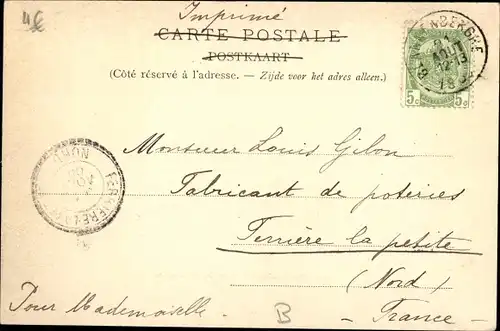 4€
Imprimé
CARTE POSTALE
POSTKAART
(Côté réservé à l'adresse. — Zijde voor het adres alleen.)
5c 5c
Monsieur Louis Gilon
Fabricant de poteries
Ferrière la petite
(Nord)
Pour Mademoiselle. B - France -